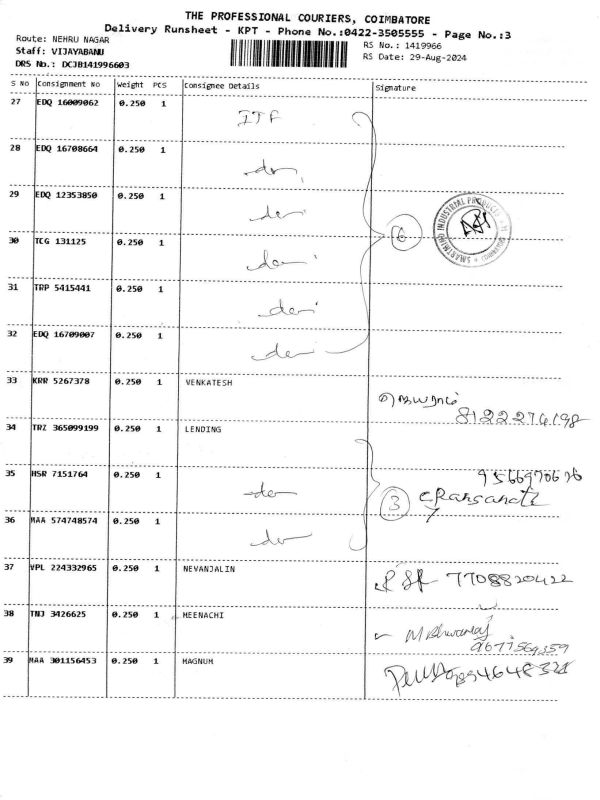 THE PROFESSIONAL COURIERS, COIMBATORE
Delivery Runsheet - KPT - Phone No.:0422-3505555 - Page No.:3
Route: NEHRU NAGAR
Staff: VIJAYABANU
DRS No.: DCJB141996603
RS No.: 1419966
RS Date: 29-Aug-2024
S No Consignment No Weight PCS Consignee Details Signature
27 EDQ 16009062 0.250 1 ITF
28 EDQ 16708664 0.250 1
29 EDQ 12353850 0.250 1
30 TCG 131125 0.250 1
31 TRP 5415441 0.250 1
32 EDQ 16709007 0.250 1
6
33 KRR 5267378 0.250 1 VENKATESH
8122274198
34 TRZ 365099199 0.250 1 LENDING
35 HSR 7151764 0.250 1
9566970676
3
36 MAA 574748574 0.250 1
37 VPL 224332965 0.250 1 NEVANJALIN
7708820422
38 TNJ 3426625 0.250 1 MEENACHI
39 MAA 301156453 0.250 1 MAGNUM